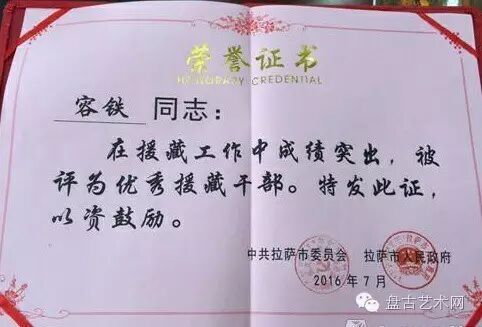 荣誉证书
HANORARY CREDENTIAL
容铁 同志：
在援藏工作中成绩突出，被
评为优秀援藏干部。特发此证，
以资鼓励。
中共拉萨市委员会 拉萨市人民政府
2016年7月
盘古艺术网